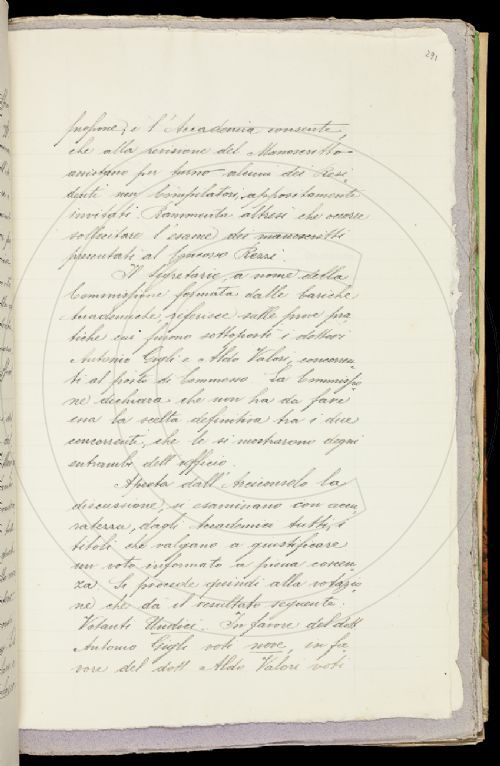 291
propone, e l'Accademia consente,
che alla revisione del Manoscritto
assistano per turno alcuni dei Resi-
denti non Compilatori, appositamente
invitati. Rammenta altresì che occorre
sollecitare l'esame dei manoscritti
presentati al Concorso Rezzi.
Il Segretario, a nome della
Commissione formata dalle cariche
Accademiche, riferisce sulle prove pra-
tiche cui furono sottoposti i dottori
Antonio Gigli e Aldo Valori, concorren-
ti al posto di Commesso. La Commissio-
ne dichiara che non ha da fare
essa la scelta definitiva tra i due
concorrenti, che le si mostrarono degni
entrambi dell'ufficio.
Aperta dall'Arciconsolo la
discussione, si esaminano con accu-
ratezza, dagli Accademici tutti, i
titoli che valgano a giustificare
un voto informato a piena coscien-
za. Si procede quindi alla votazio-
ne che dà il resultato seguente:
Votanti Undici. In favore del dott.
Antonio Gigli voti nove, in fa-
vore del dott. Aldo Valori voti